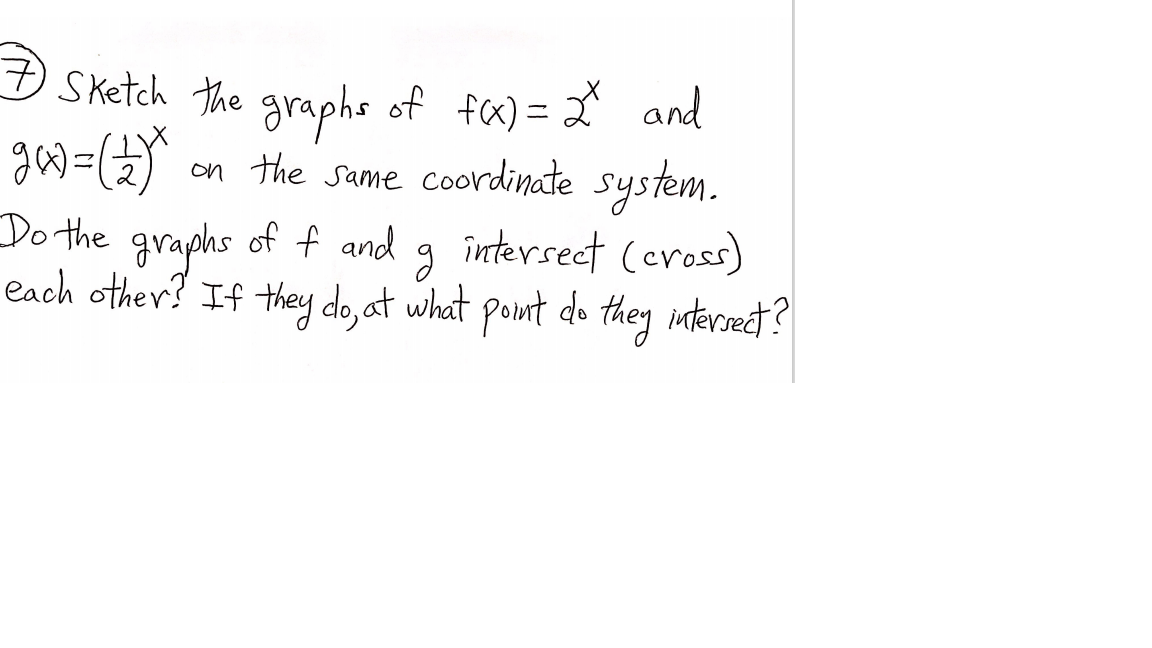 ⑦ Sketch the graphs of f(x) = 2ˣ and
g(x) = (1/2)ˣ on the same coordinate system.
Do the graphs of f and g intersect (cross)
each other? If they do, at what point do they intersect?